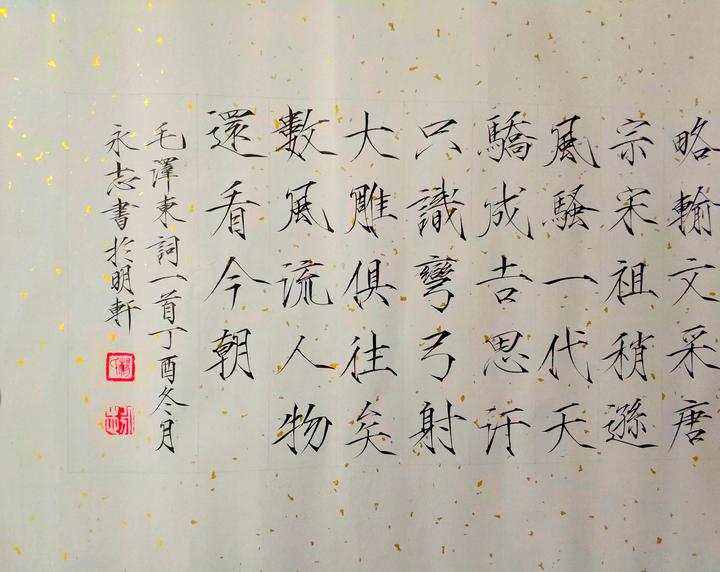 略輸文采唐
宗宋祖稍遜
風騷一代天
驕成吉思汗
只識彎弓射
大雕俱往矣
數風流人物
還看今朝
毛澤東詞一首丁酉冬月
永志書於明軒